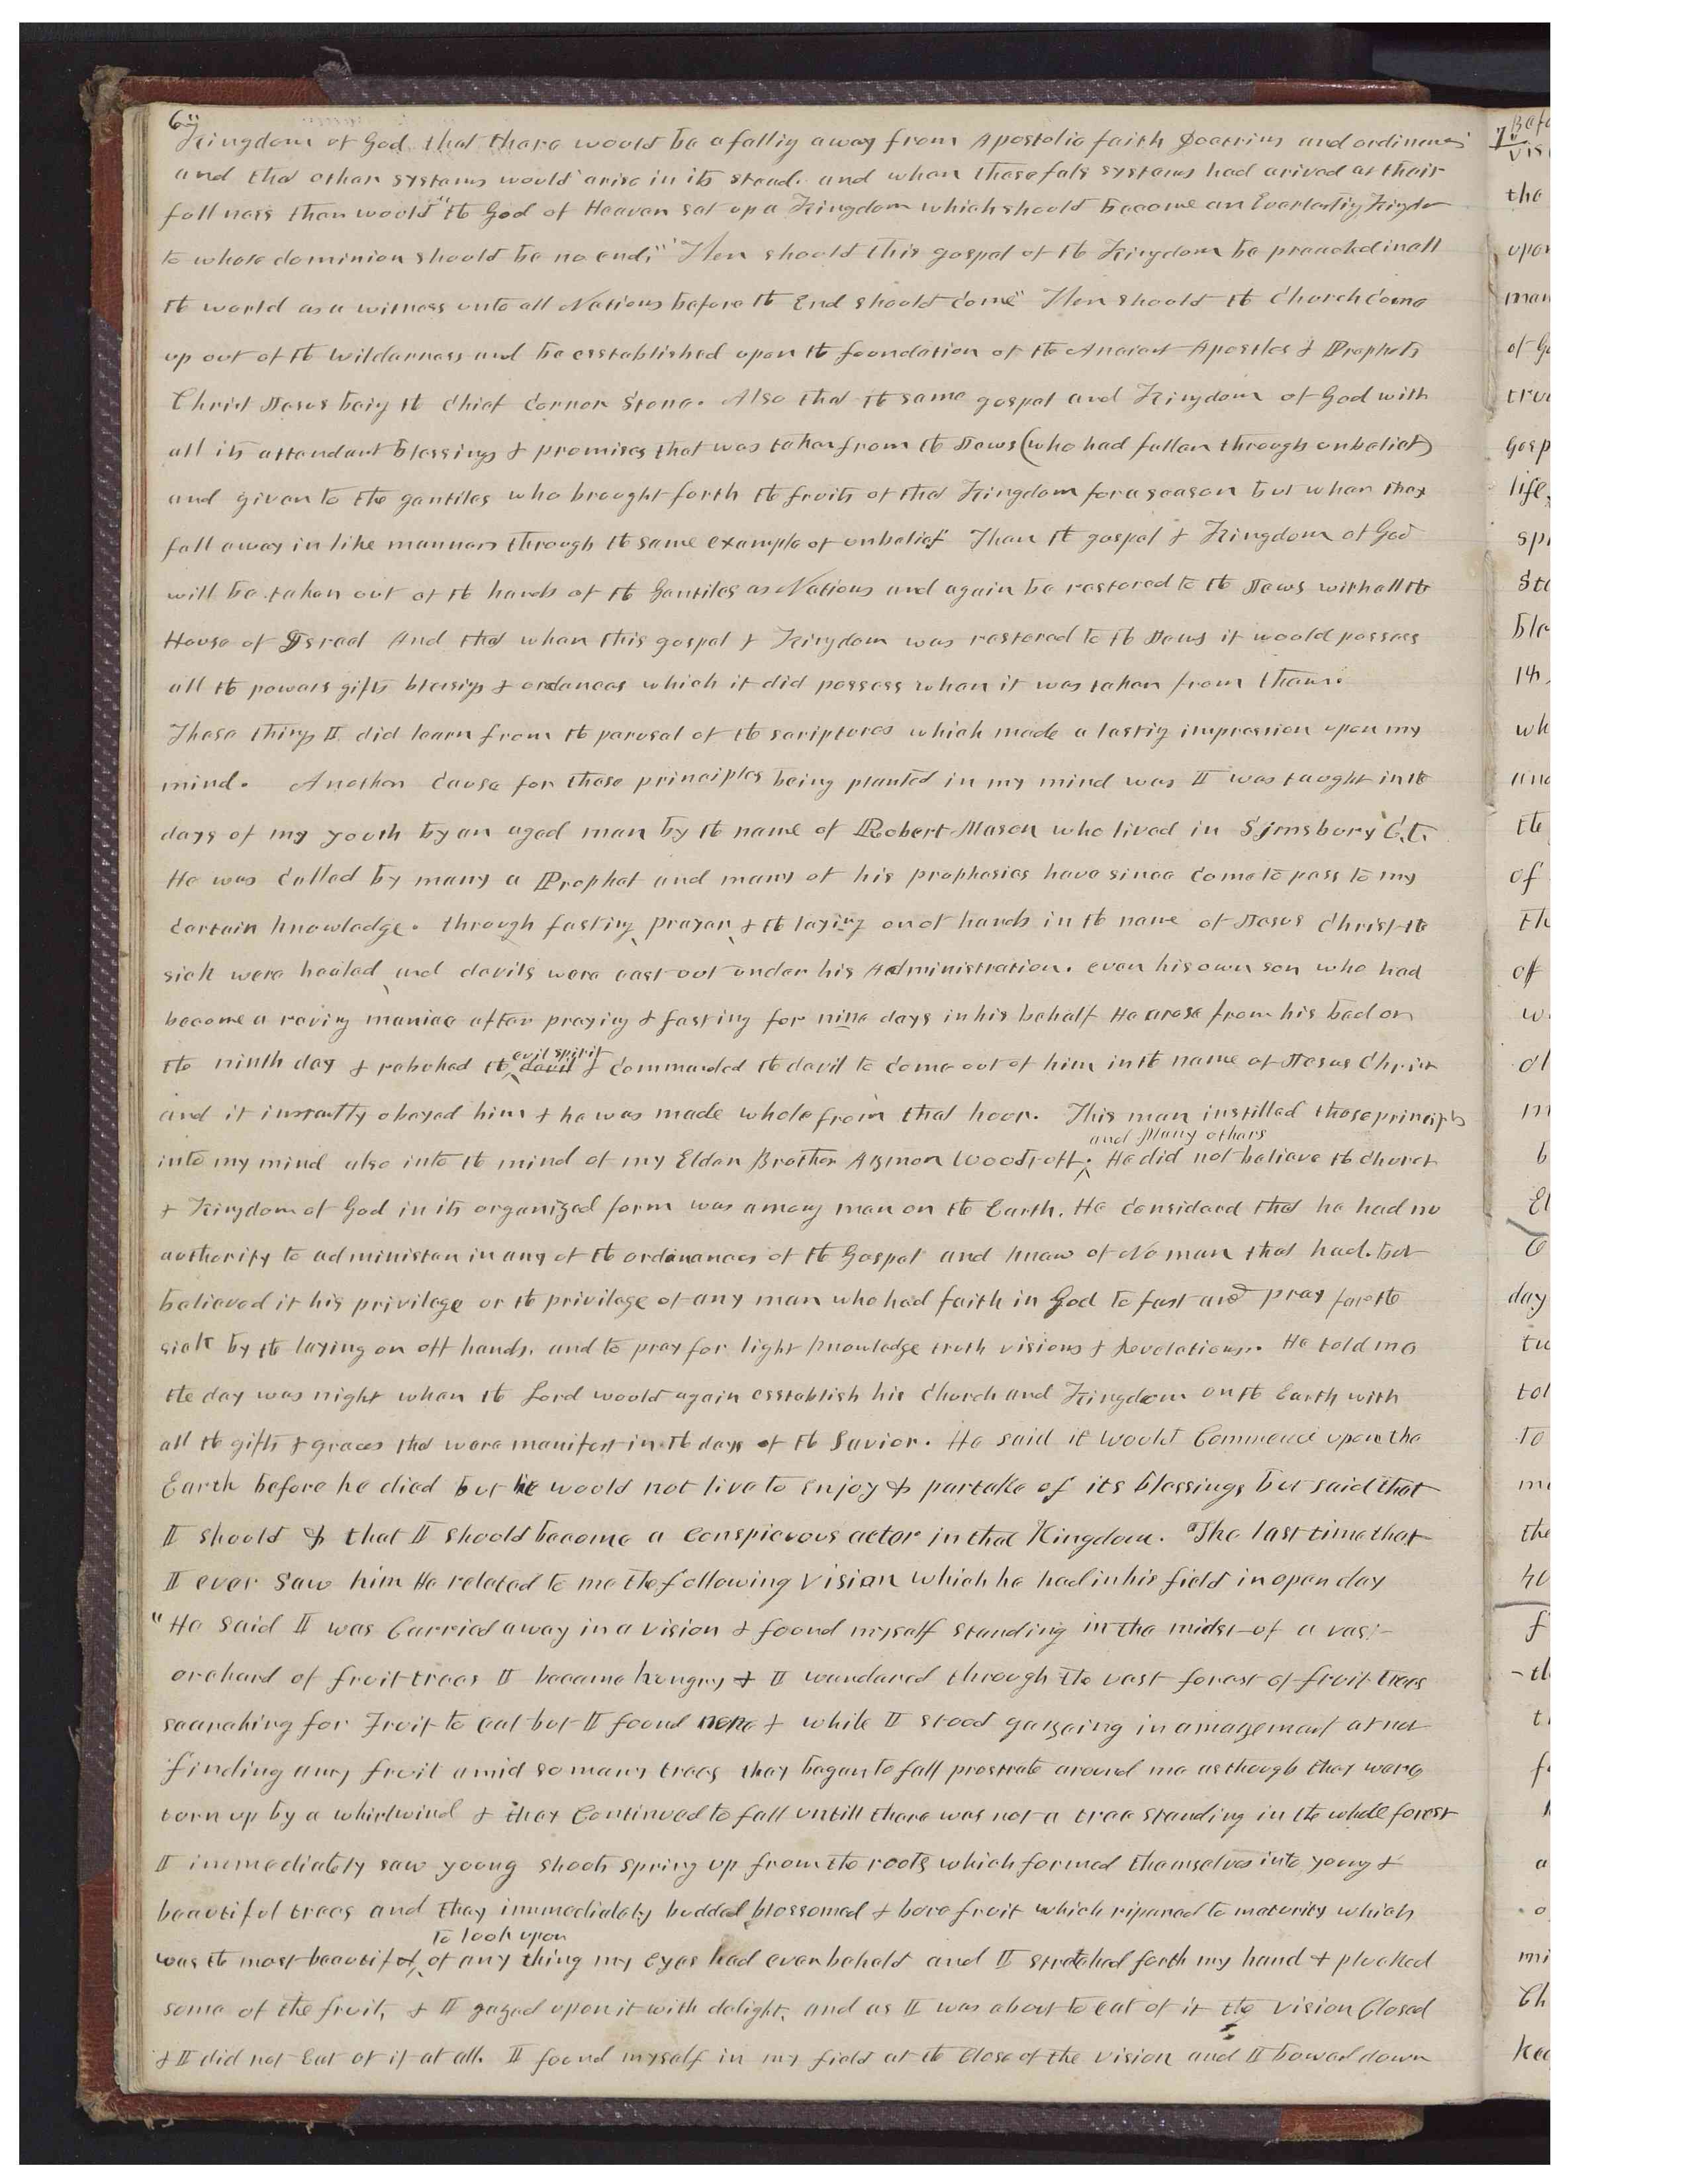 6"
Kingdom of God that there would be a fallig away from Apostolic faith Doctrins and ordinences
and that other systems would arise in its stead. and when these fals systems had arived at their
fullness then would "the God of Heaven set up a Kingdom which should become an Everlastig Kigdom
to whose dominion should be no end," "Then should this gospel of the Kingdom be preached in all
the world as a witness unto all Nations before the End should come" Then should the Church come
up out of the wilderness and be esstablished upon the foundation of the Ancient Apostles & Prophets
Christ Jesus beig the chief corner Stone. Also that the same gospel and Kingdom of God with
all its attendant blessings & promises that was taken from the Jews (who had fallen through unbelief)
and given to the gentiles who brought forth the fruits of that Kingdom for a season but when they
fall away in like manners through the same example of unbelief. Then the gospel & Kingdom of God
will be taken out of the hands of the Gentiles as Nations and again be restored to the Jews with all the
House of Israel And that when this gospel & Kingdom was restored to the Jews it would possess
all the powers gifts blessigs & ordances which it did possess when it was taken from them.
These things I did learn from the perusal of the scriptures which made a lastig impression upon my
mind. Another cause for these principles being planted in my mind was I was taught in the
days of my youth by an aged man by the name of Robert Mason who lived in Simsbury C.t.
He was called by many a Prophet and many of his prophesies have since come to pass to my
certain knowledge. through fasting, prayer, & the laying on of hands in the name of Jesus Christ the
sick were healed, and devils were cast out under his Administration. even his own son who had
become a raving maniac after praying & fasting for nine days in his behalf He arose from his bed on
evil spirit
the ninth day & rebuked the devil & commanded the devil to come out of him in the name of Jesus Christ
and it instantly obeyed him & he was made whole from that hour. This man instilled these principls
and Many others
into my mind also into the mind of my Elder Brother Azmon Woodruff. He did not believe the church
& Kingdom of God in its organized form was among man on the Earth. He considerd that he had no
authority to administer in any of the ordinances of the Gospel and knew of No man that had. but
believed it his privilege or the privilege of any man who had faith in God to fast and pray for the
sick by the laying on off hands. and to pray for light knowledge truth visions & Revelations. He told me
the day was night when the Lord would again esstablish his Church and Kingdom on the Earth with
all the gifts & graces that were manifest in the days of the Savior. He said it would Commence upon the
Earth before he died but he would not live to enjoy & partake of its blessings but said that
I should & that I should become a conspicuous actor in that Kingdom. The last time that
I ever saw him He related to me the following vision which he had in his field in open day
"He said I was Carried away in a vision & found myself standing in the midst of a vast
orchard of fruit trees I became hungry & I wandered through the vast forest of fruit trees
searching for Fruit to eat but I found none & while I stood gazeing in amazement at not
finding any fruit amid so many trees they began to fall prostrate around me as though they were
torn up by a whirlwind & they Continued to fall untill there was not a tree standing in the whole forest
I immediately saw young shoots spring up from the roots which formed themselves into young &
beautiful trees and they immediately budded, blossomed & bore fruit which ripened to maturity which
to look upon
was the most beautiful of any thing my eyes had ever beheld and I stretched forth my hand & plucked
some of the fruit, & I gazed upon it with delight, and as I was about to eat of it the vision Closed
& I did not Eat of it at all. I found myself in my field at the Close of the vision and I bowed down